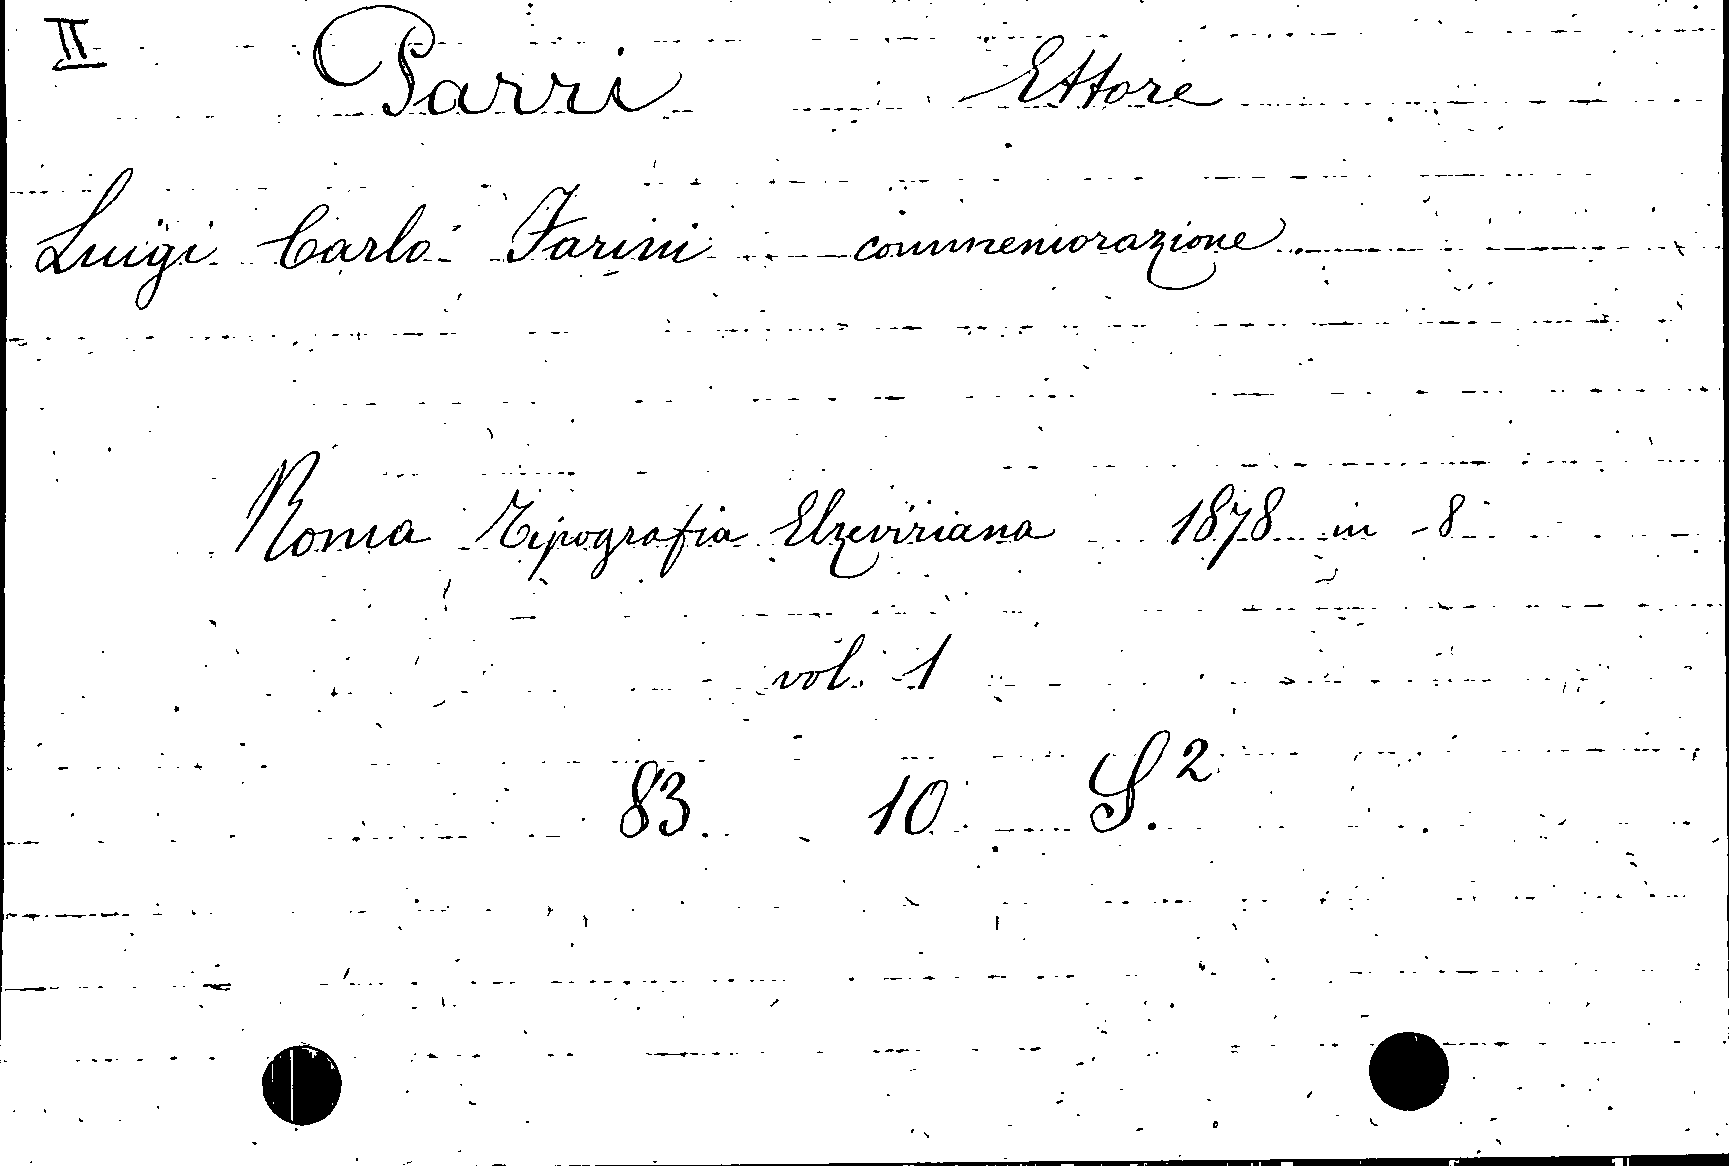 II Parri Ettore
Luigi Carlo Farini commemorazione
Roma Tipografia Elzeviriana 1878 in -8
vol. 1
83. 10 S.²